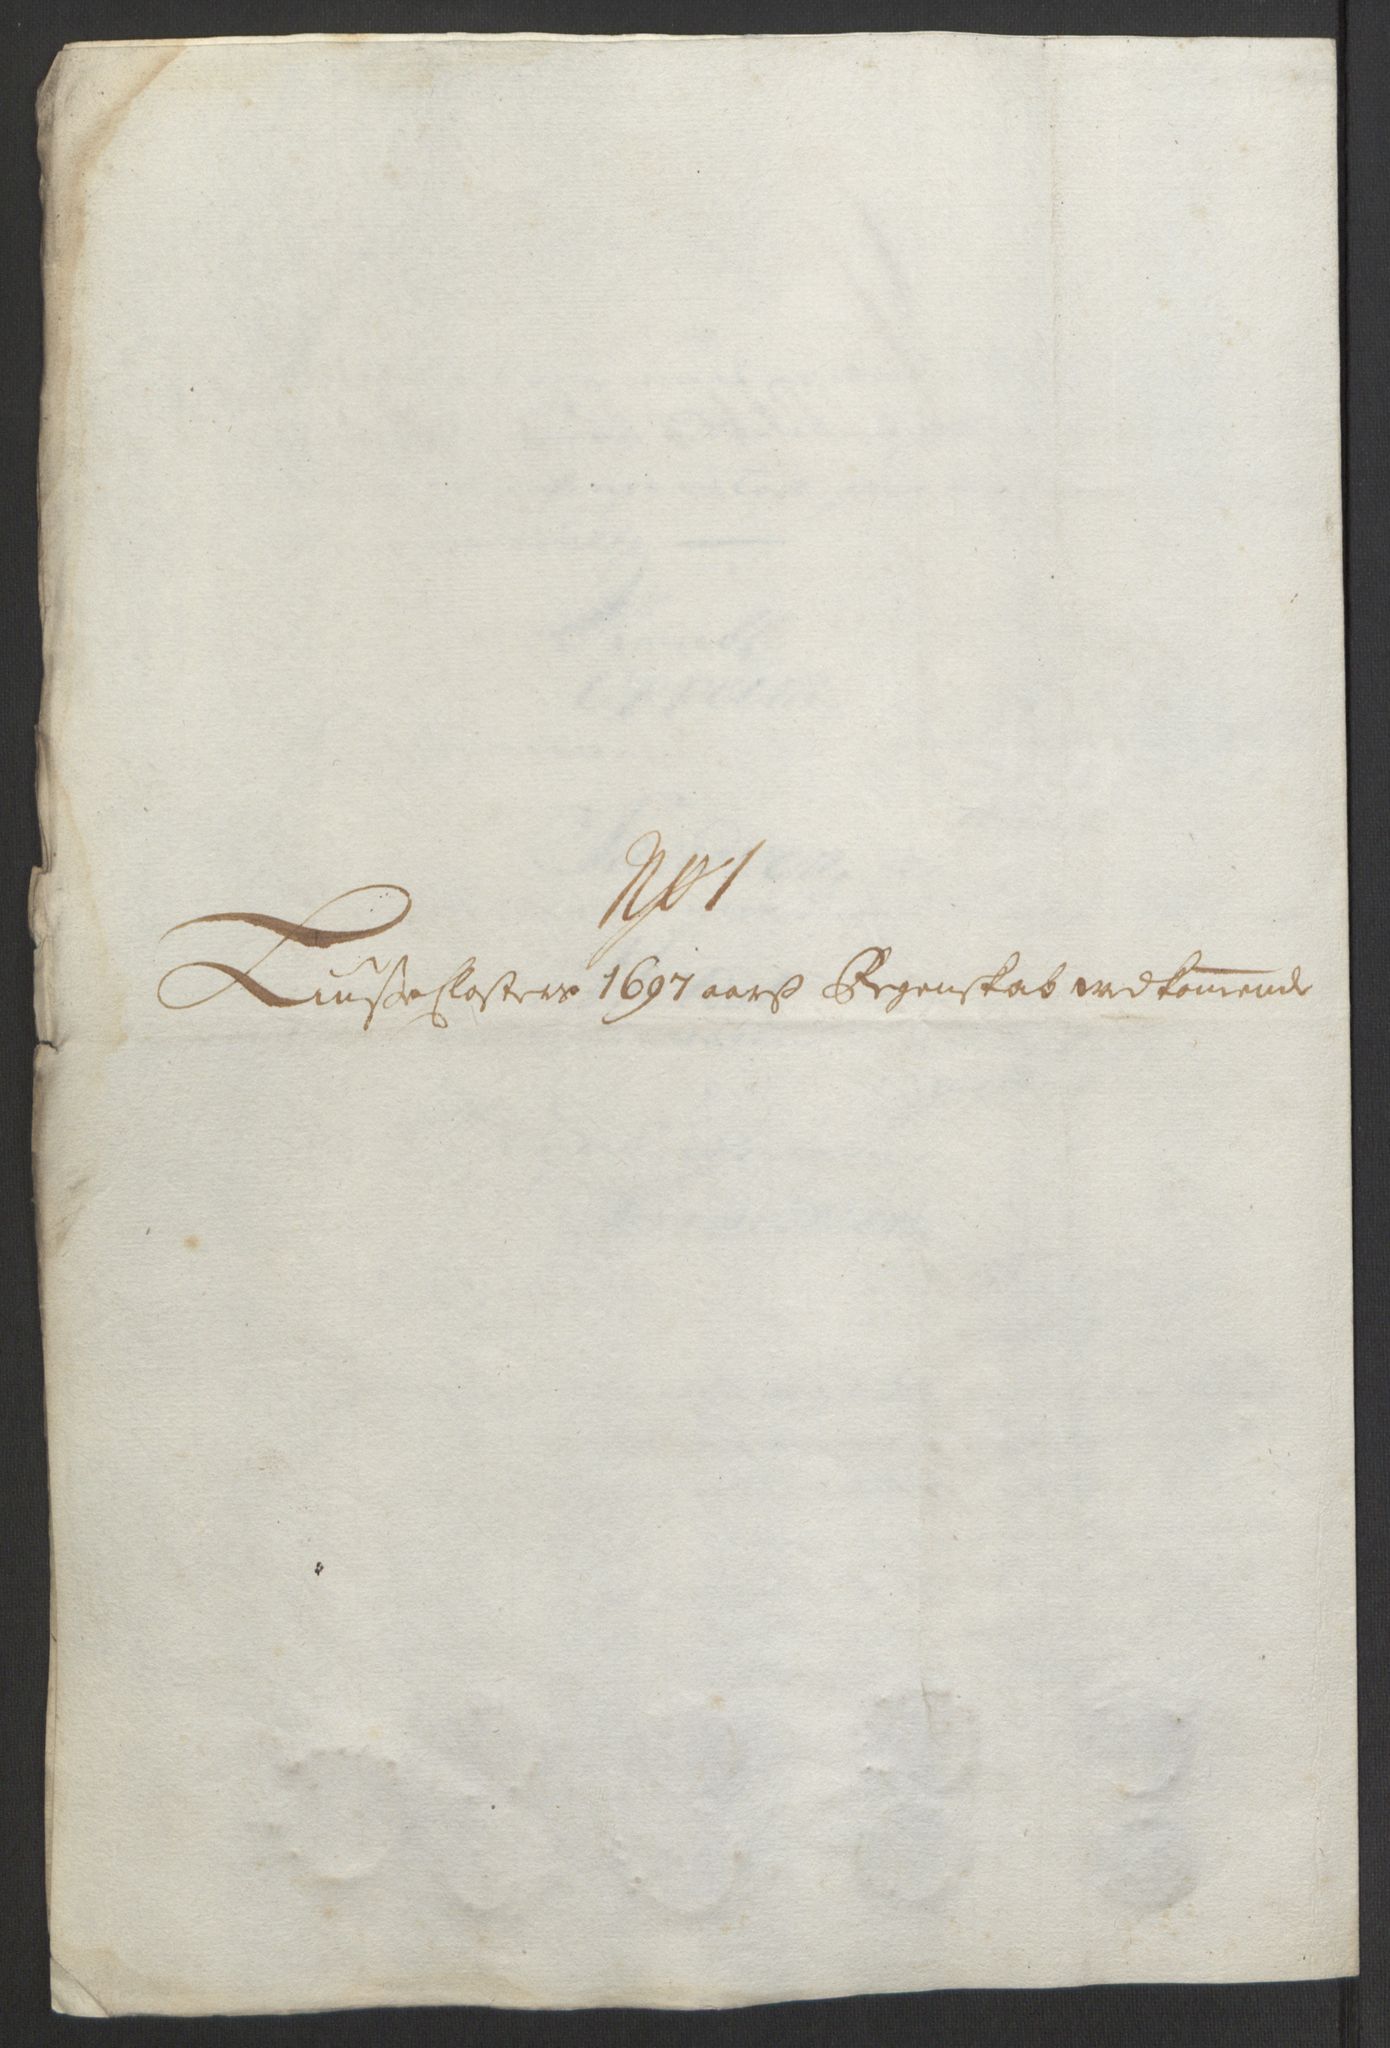 No 1
Liusse Closters 1697 aars Regenskab vedkomende